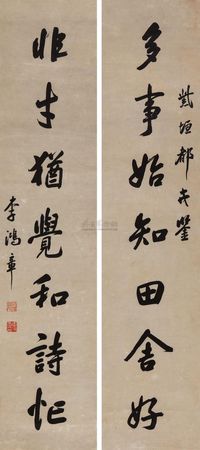 紫垣都鑒
多事始知田舍好
非才猶覺和詩忙
李鴻章